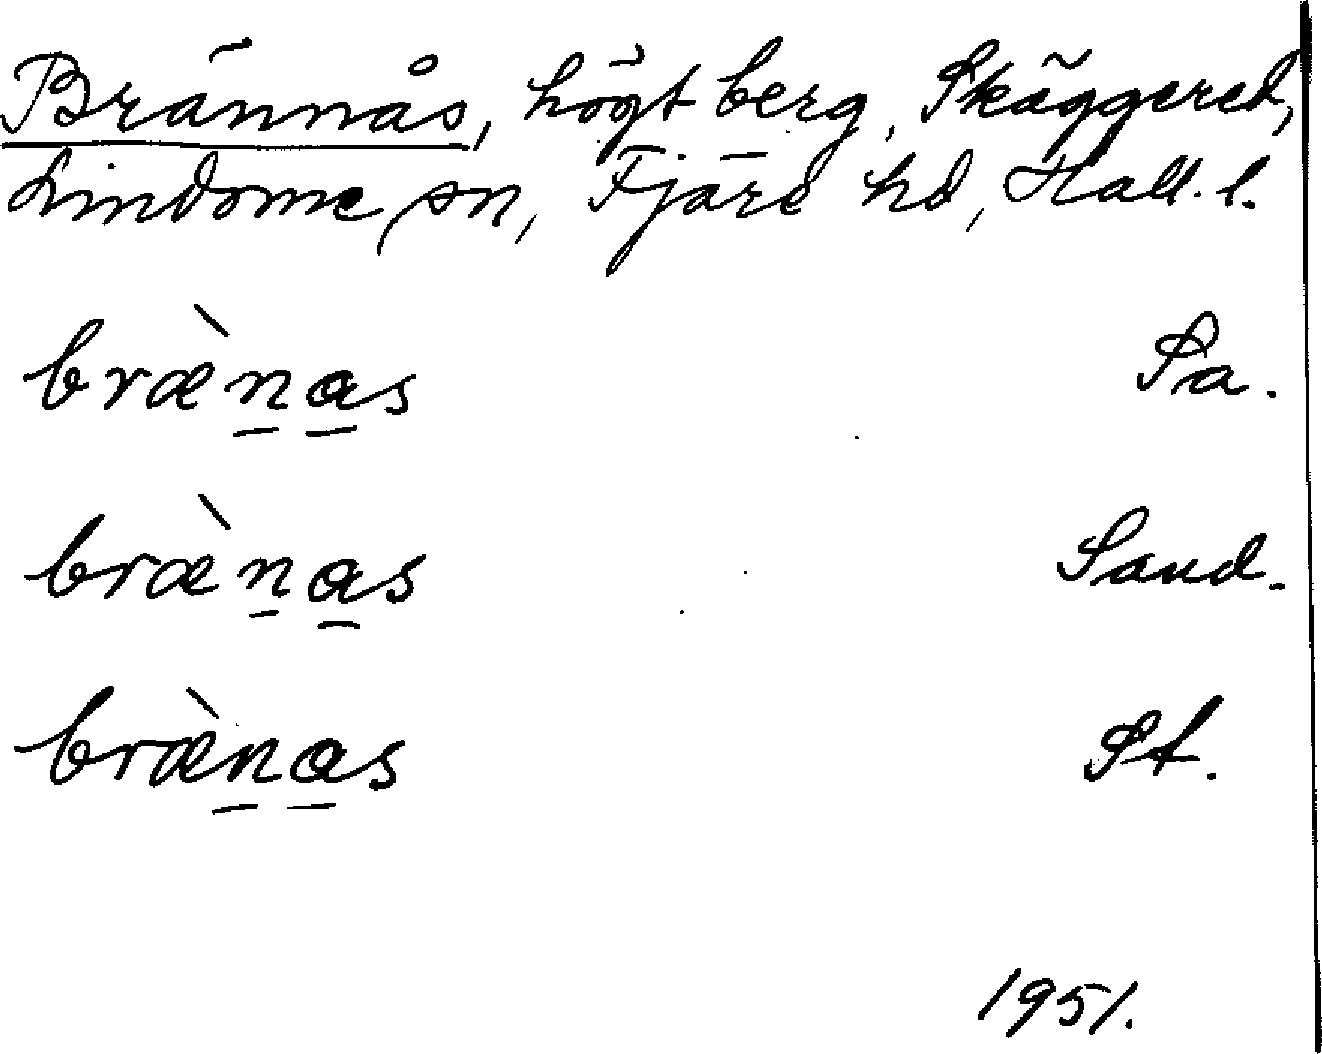 Brännås, högt berg, Skäggered,
Lindome sn, Fjäre hd, Hall. l.
bræ̀n̲a̲s Sa.
bræ̀n̲a̲s Sand.
bræ̀n̲a̲s St.
1951.